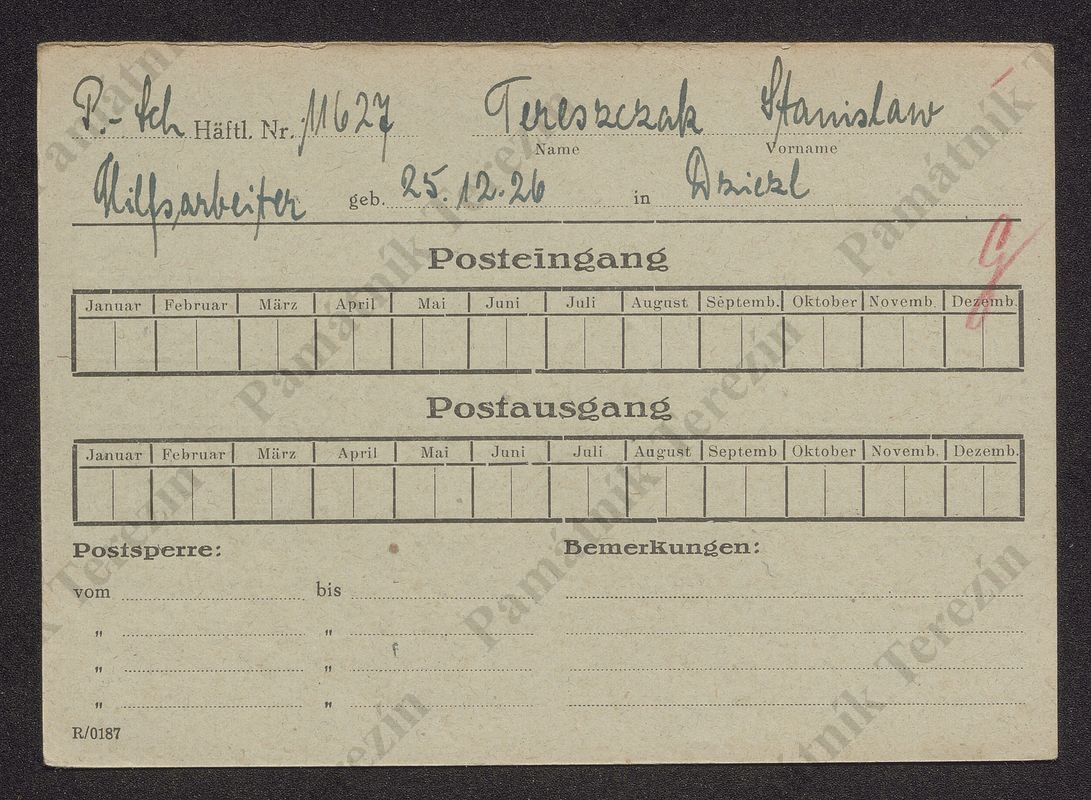 P.- Sch Häftl. Nr. 11627 Tereszczak Stanislaw
Name Vorname
Hilfsarbeiter geb. 25.12.26 in
Posteingang
Januar Februar März April Mai Juni Juli August Septemb. Oktober Novemb. Dezemb.
Postausgang
Januar Februar März April Mai Juni Juli August Septemb Oktober Novemb. Dezemb.
Postsperre: Bemerkungen:
vom bis
" "
" "
" "
R/0187
Památník Terezín